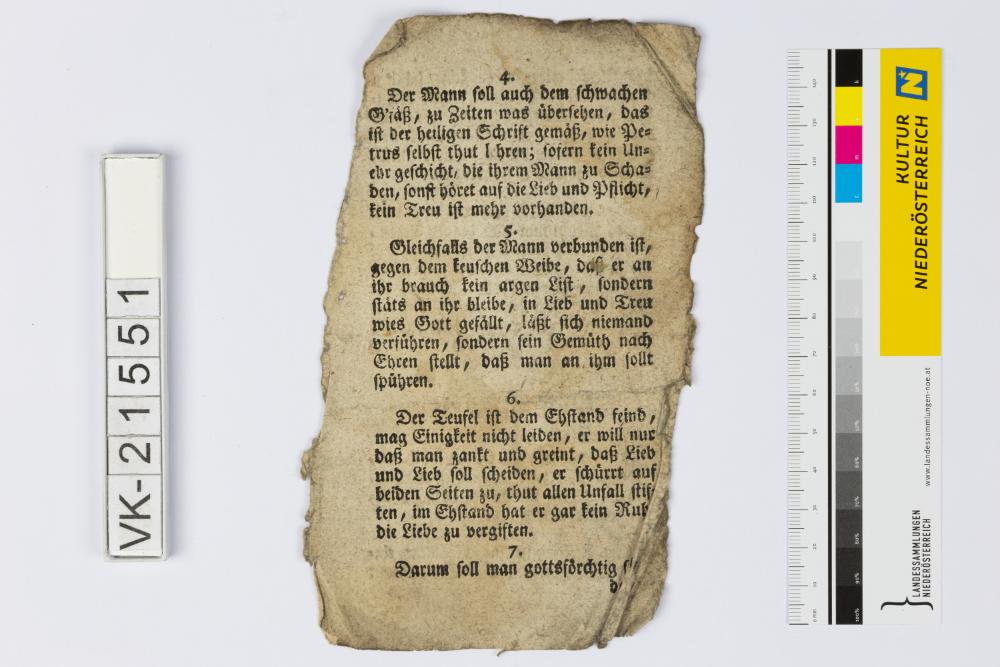 4.
Der Mann soll auch dem schwachen
G'fäß, zu Zeiten was übersehen, das
ist der heiligen Schrift gemäß, wie Pe-
trus selbst thut lehren; sofern kein Un-
ehr geschicht, die ihrem Mann zu Scha-
den, sonst höret auf die Lieb und Pflicht,
kein Treu ist mehr vorhanden.
5.
Gleichfalls der Mann verbunden ist,
gegen dem keuschen Weibe, daß er an
ihr brauch kein argen List, sondern
stäts an ihr bleibe, in Lieb und Treu
wies Gott gefällt, läßt sich niemand
verführen, sondern sein Gemüth nach
Ehren stellt, daß man an ihm sollt
spühren.
6.
Der Teufel ist dem Ehstand feind,
mag Einigkeit nicht leiden, er will nur
daß man zankt und greint, daß Lieb
und Lieb soll scheiden, er schürrt auf
beiden Seiten zu, thut allen Unfall stif-
ten, im Ehstand hat er gar kein Ruh
die Liebe zu vergiften.
7.
Darum soll man gottsförchtig
VK-21551
KULTUR
NIEDERÖSTERREICH
www.landessammlungen-noe.at
LANDESSAMMLUNGEN
NIEDERÖSTERREICH